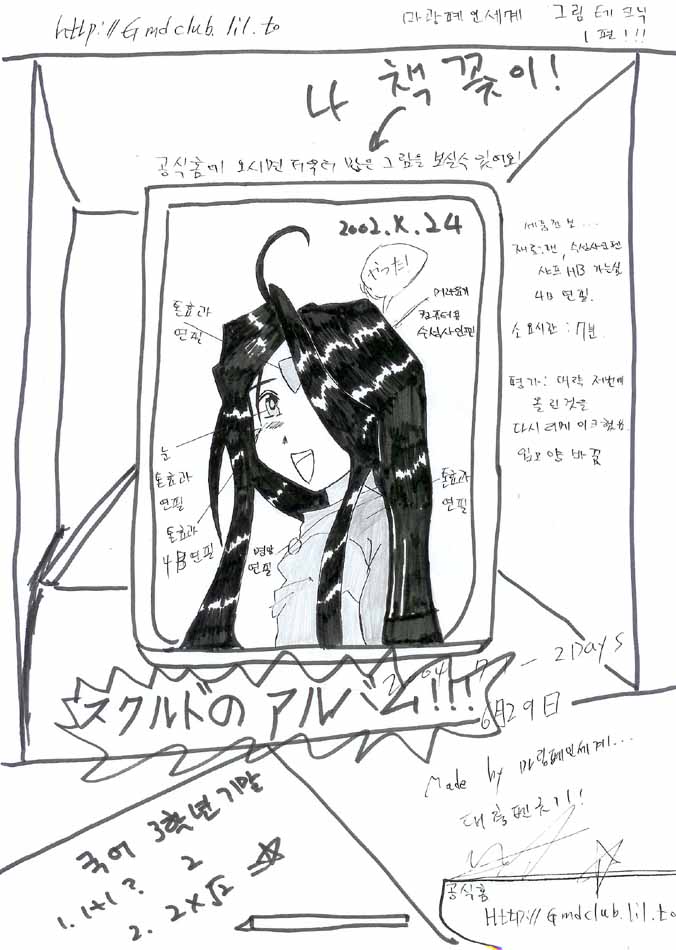 http://Gmdclub.lil.to
마광폐인세계 그림 테크닉
1편!!!
나 책꽂이!
공식홈에 오시면 더욱더 많은 그림을 보실수 있어요!
2002.X.24
やった!
톤효과
연필
컴퓨터용
수성사인펜
눈
톤효과
연필
톤효과
4B연필
명암
연필
톤효과
연필
재료:펜, 수성사인펜
샤프 HB 가는심
4B 연필.
소요시간 : 7분.
평가: 대략 저번에
올린것을
다시 리메이크했음.
입모양 바꿈
スクルドのアルバム!!!
2 Days
6月29日
Made by 마광폐인세계...
국어 3학년 기말
1. 1+1? 2
2. 2×√2
공식홈
Http://Gmdclub.lil.to